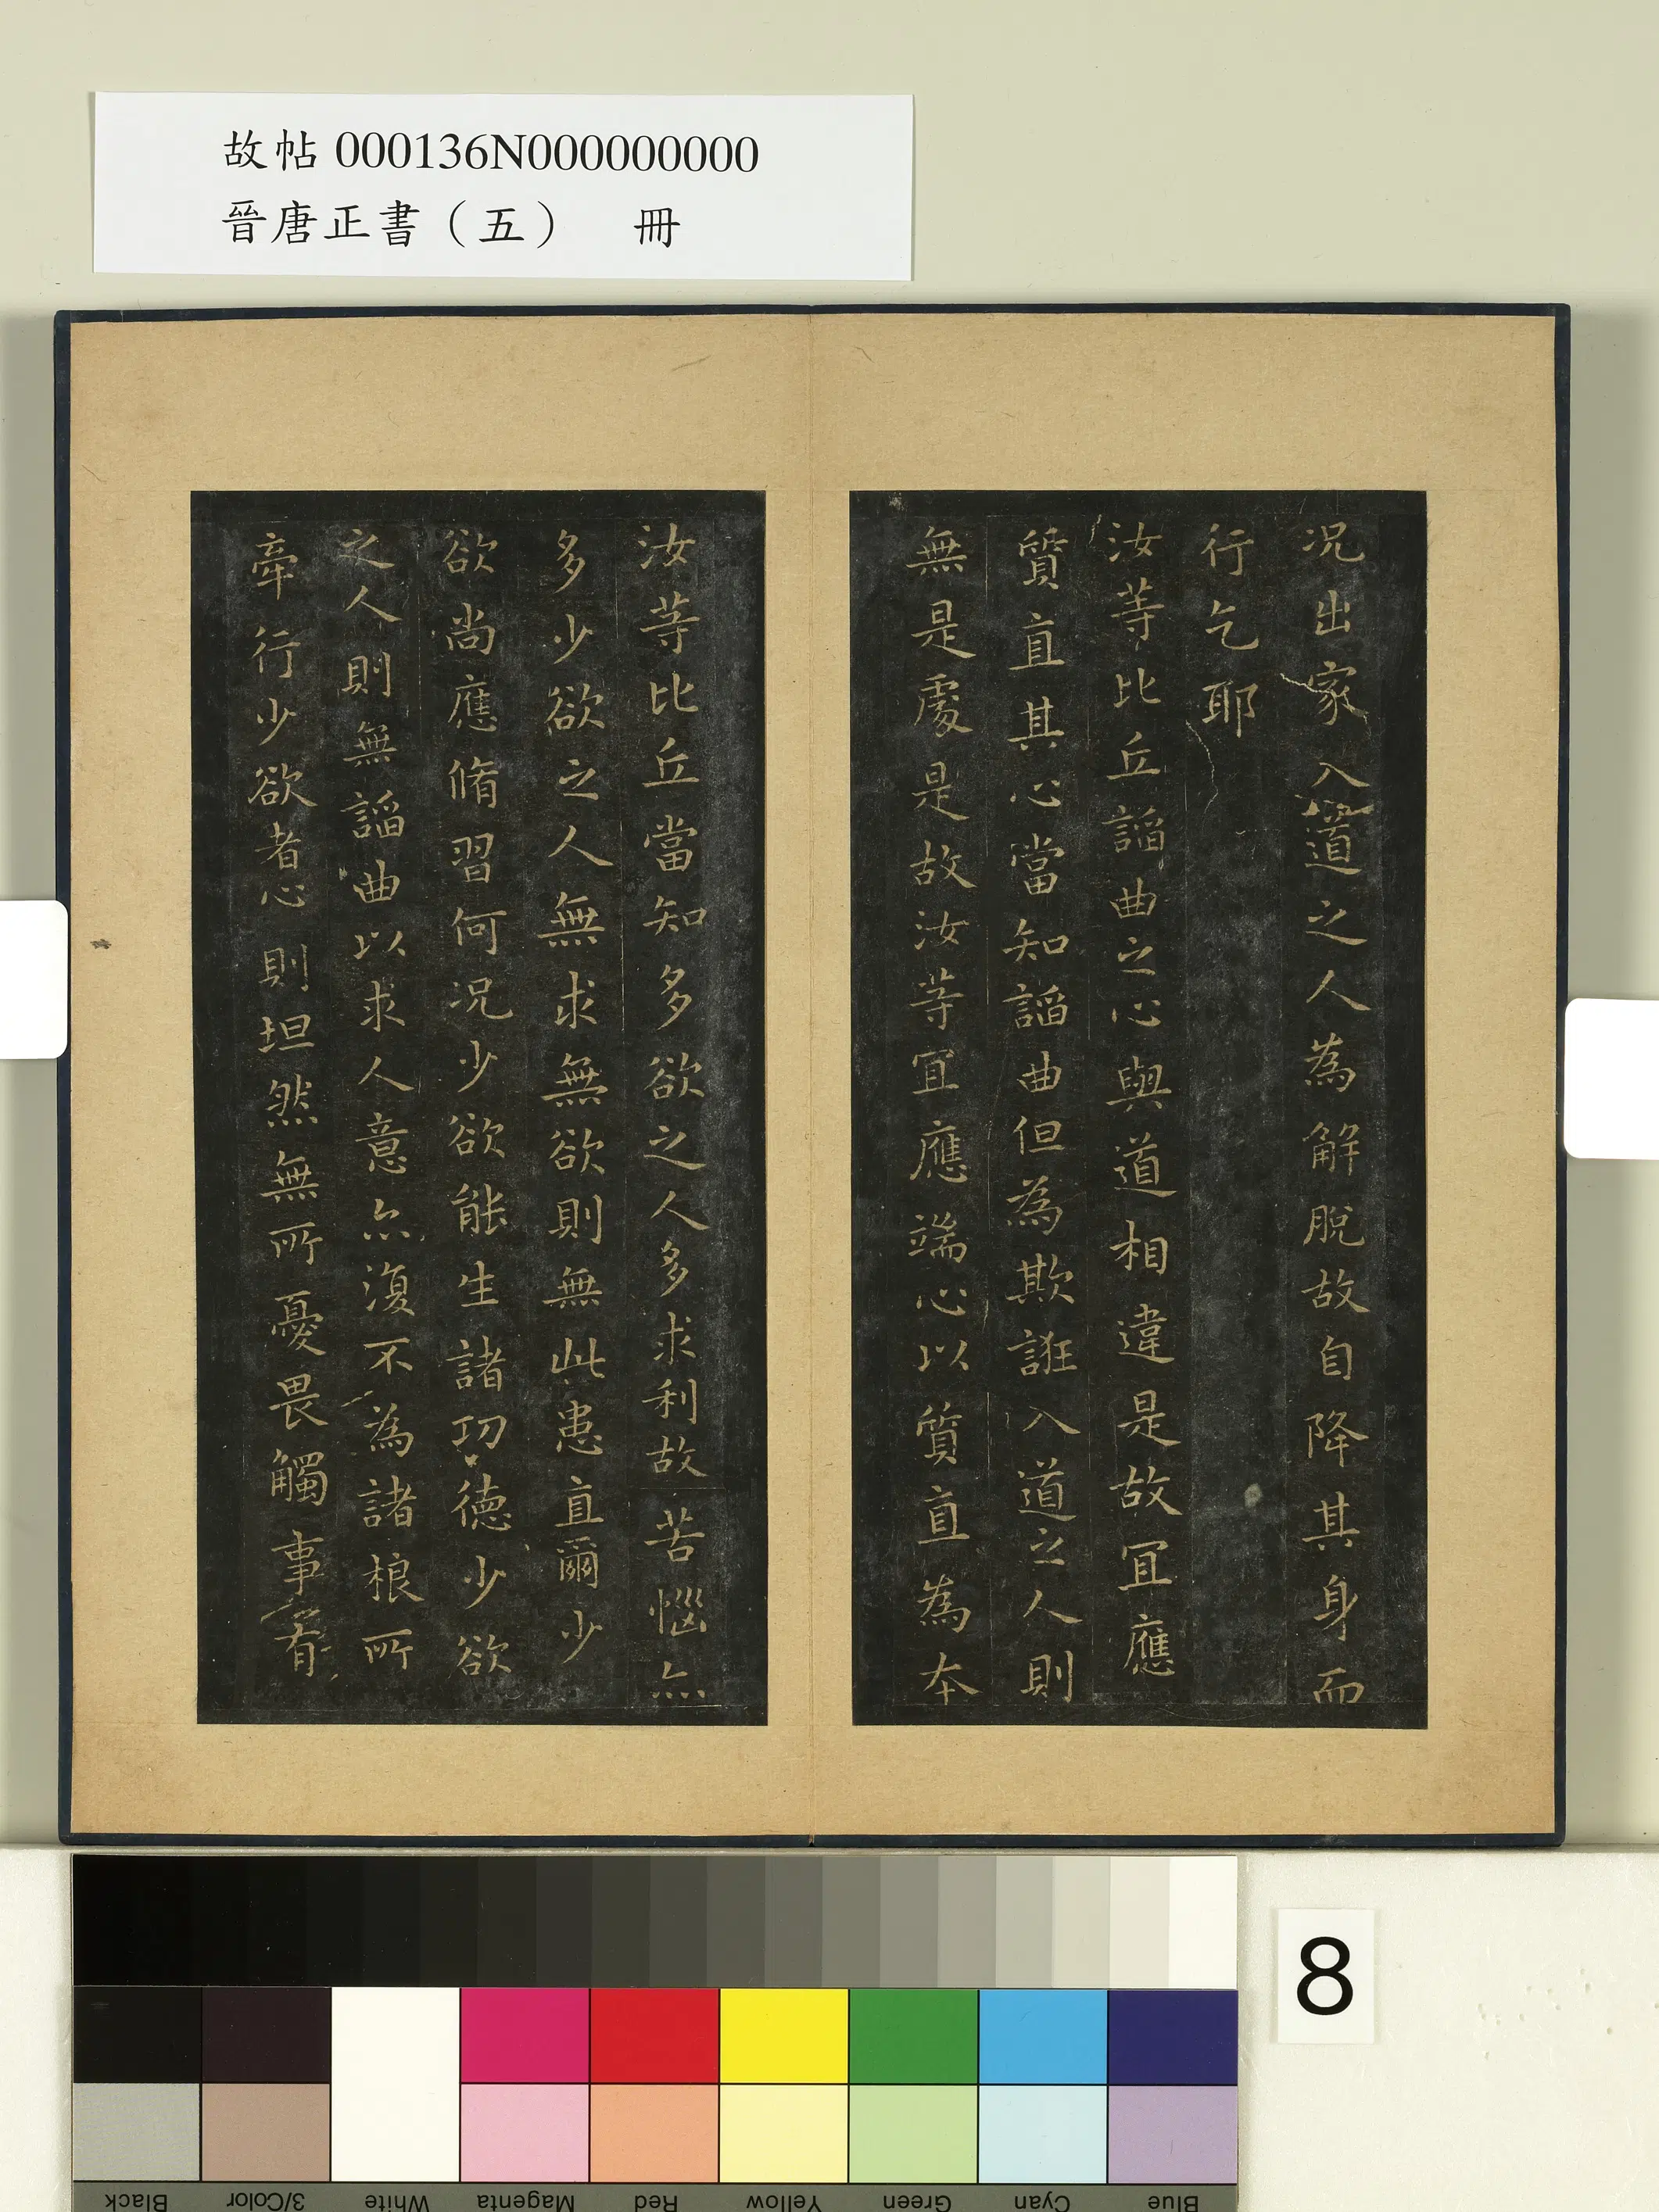 故帖 000136N000000000
晉唐正書（五）　冊
况出家入道之人為解脫故自降其身而
行乞耶
汝等比丘謟曲之心與道相違是故冝應
質直其心當知謟曲但為欺誑入道之人則
無是處是故汝等冝應端心以質直為本
汝等比丘當知多欲之人多求利故苦惱亦
多少欲之人無求無欲則無此患直爾少
欲尚應脩習何况少欲能生諸功德少欲
之人則無謟曲以求人意亦復不為諸根所
牽行少欲者心則坦然無所憂畏觸事有
8
Black
3/Color
White
Magenta
Red
Yellow
Green
Cyan
Blue